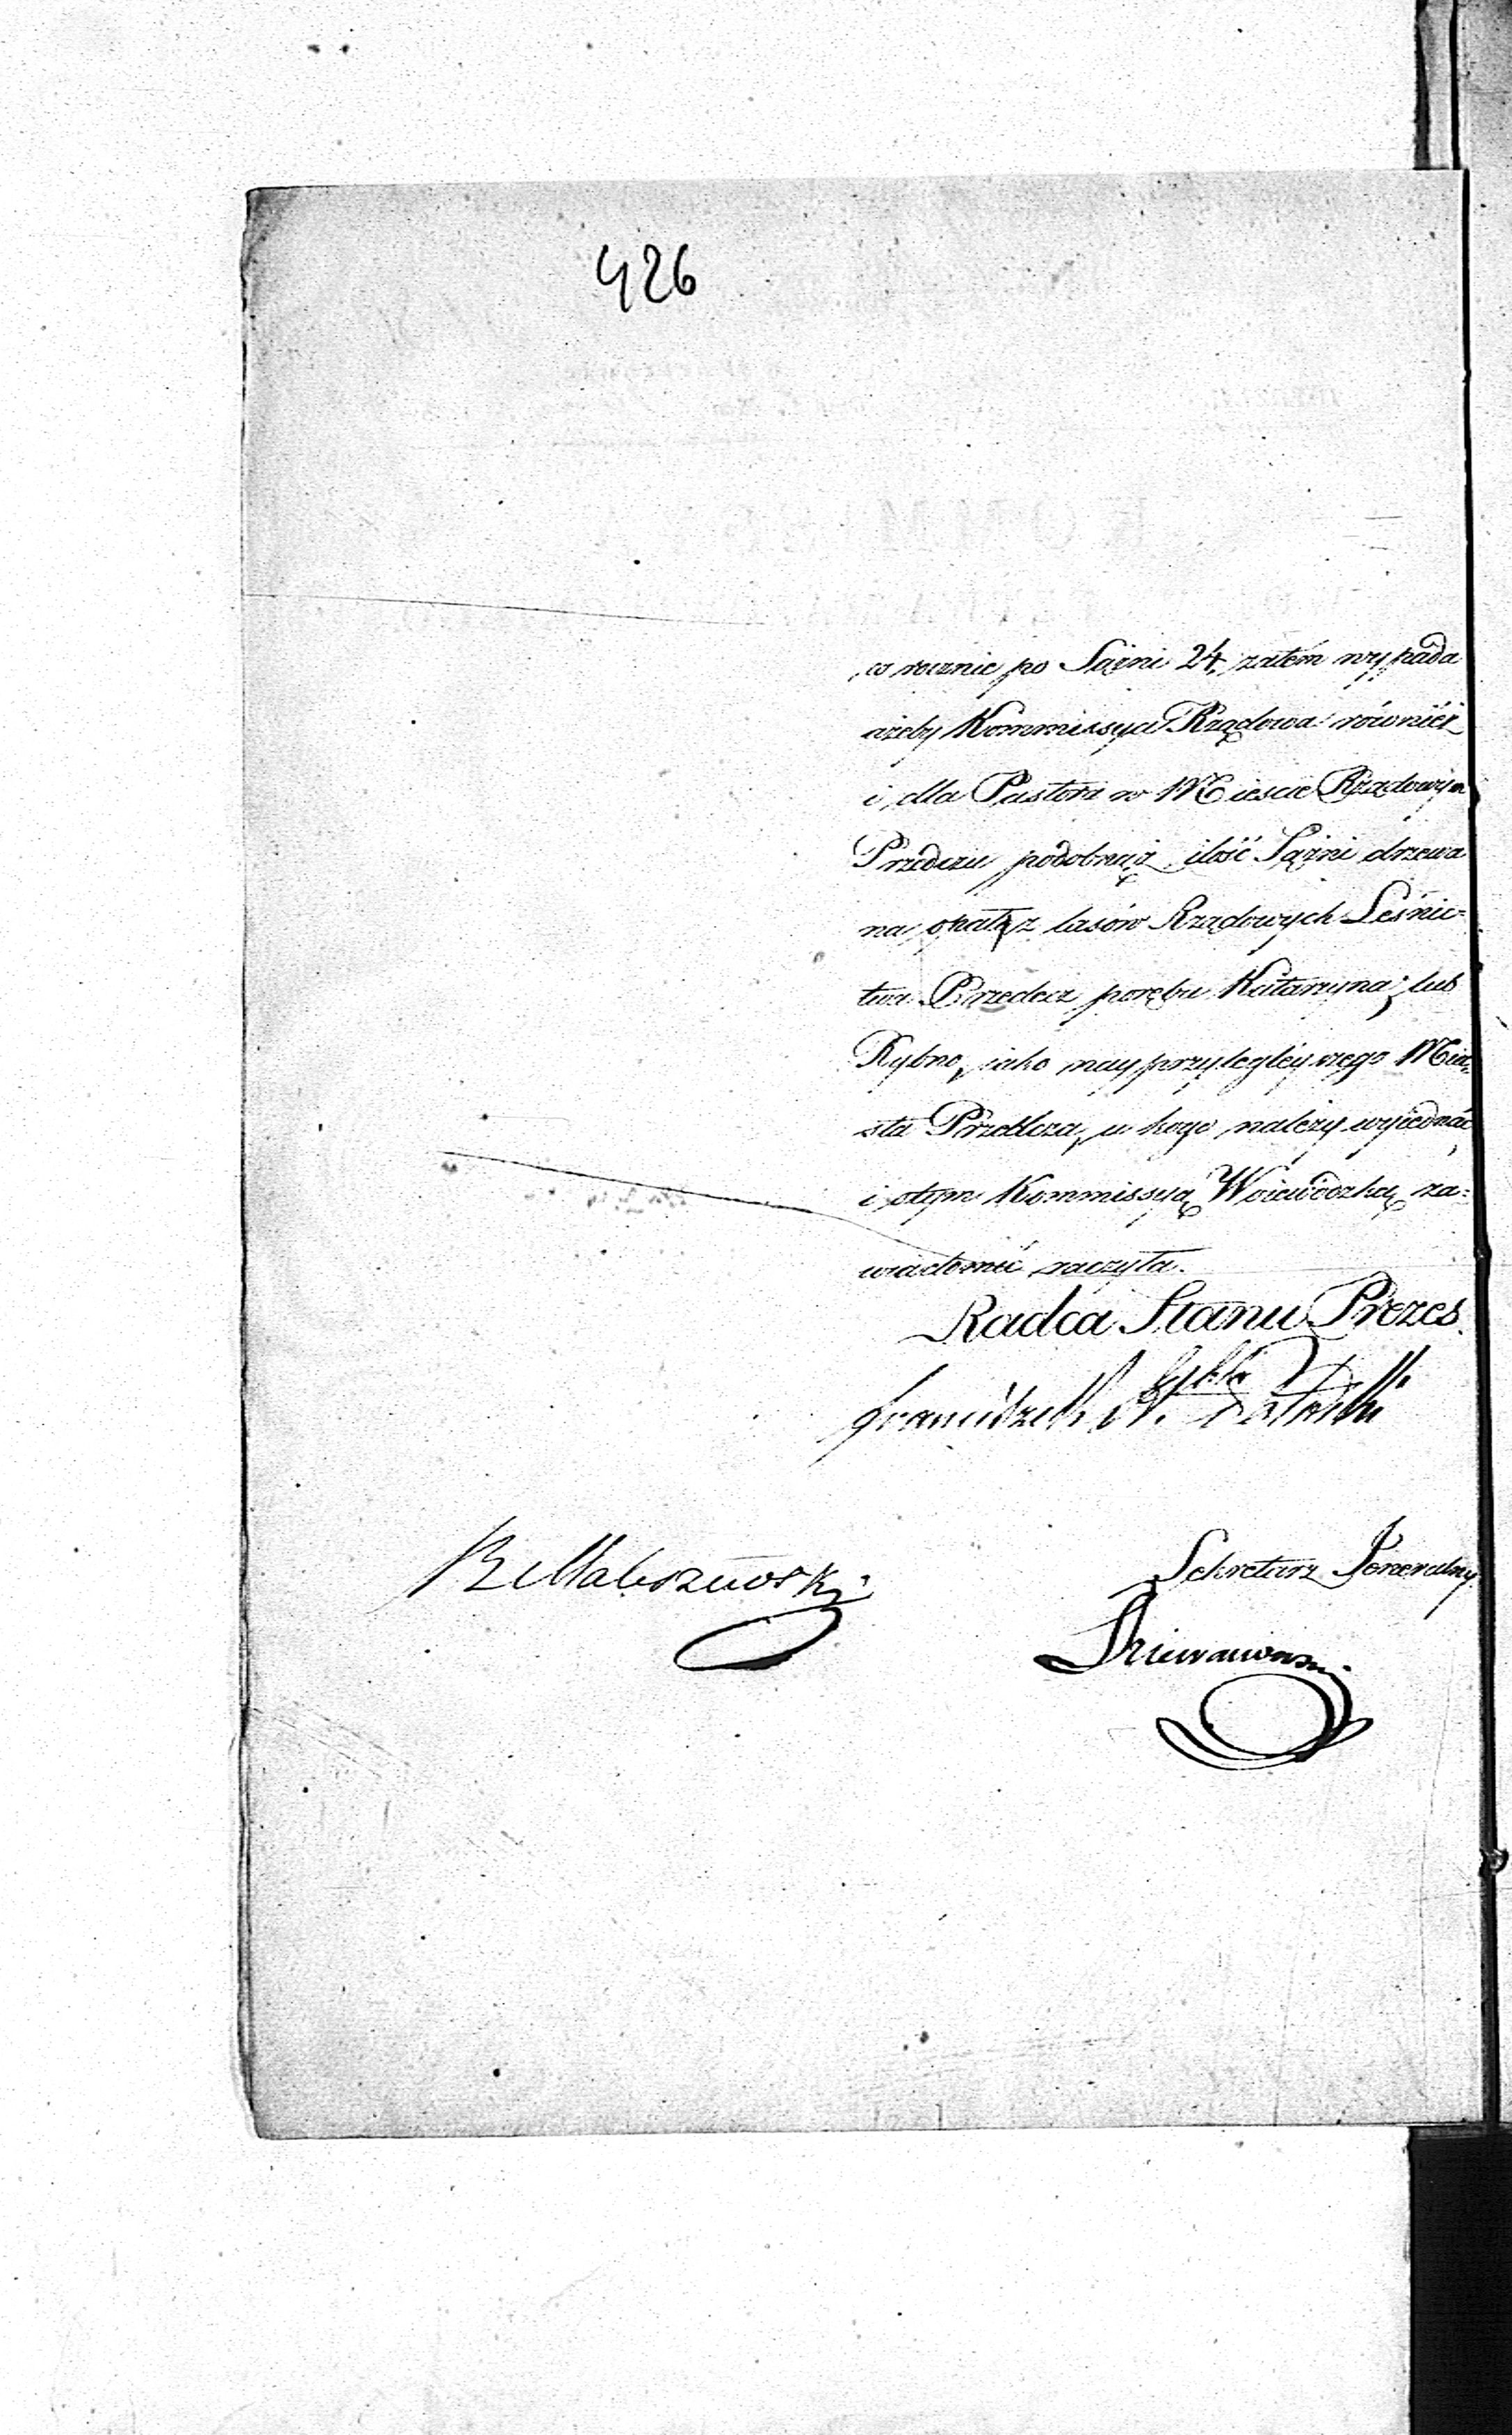 426
,co rocznie po Sążni 24, zatém wypada
ażeby Kommissya Rządowa równiéż
i dla Pastora w Mieście Rządowym
Przedczu podobnąż ilość Sążni drzewa
na opał z lasów Rządowych Leśnic=
twa Przedecz poręba Katarzyna; lub
Rybno, jako nayprzyległeyszego Mia=
sta Przedcza, u kogo należy wyjednać
i otym Kommissyą Woiewódzką za=
wiadomić raczyła.
Radca Stanu Prezes.
Franciszek
Sekretarz Jeneralny